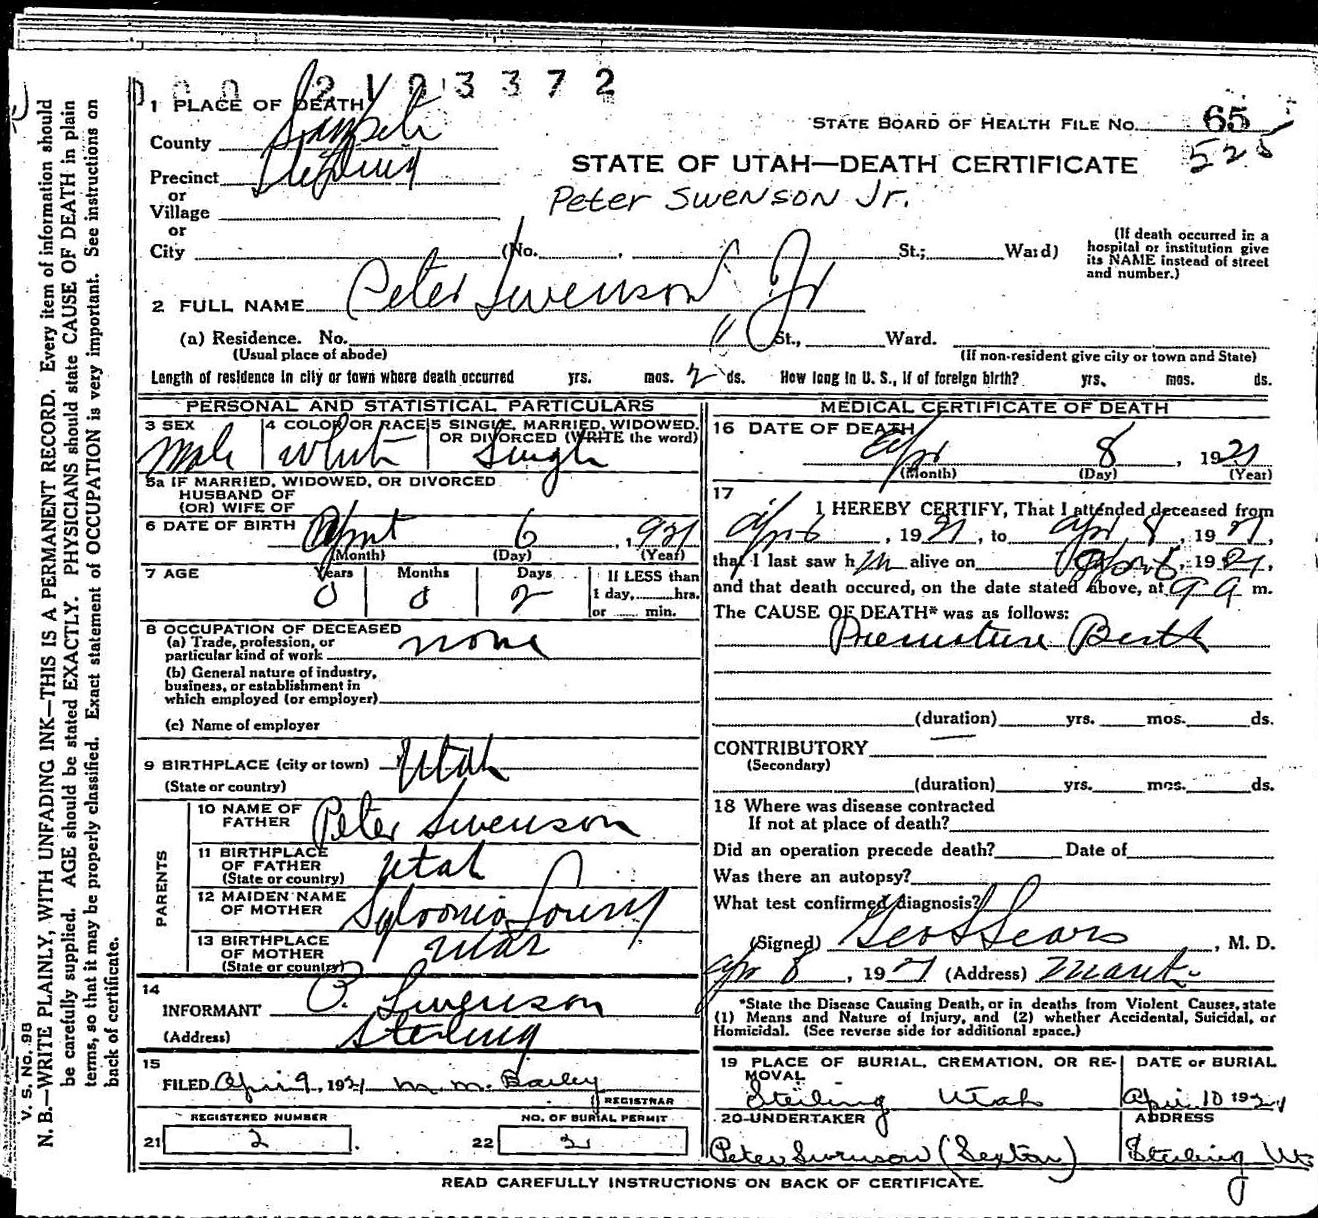 2103372
1 PLACE OF DEATH
County Sanpete
STATE BOARD OF HEALTH FILE NO. 65
525
Precinct Sterling
STATE OF UTAH—DEATH CERTIFICATE
or
Village
Peter Swenson Jr.
or
City (No. , St.; Ward)
(If death occurred in a
hospital or institution give
its NAME instead of street
and number.)
2 FULL NAME Peter Swenson Jr
(a) Residence. No. St., Ward.
(Usual place of abode)
(If non-resident give city or town and State)
Length of residence in city or town where death occurred yrs. mos. 2 ds. How long in U. S., if of foreign birth? yrs. mos. ds.
PERSONAL AND STATISTICAL PARTICULARS
3 SEX 4 COLOR OR RACE 5 SINGLE, MARRIED, WIDOWED,
OR DIVORCED (WRITE the word)
Male White Single
5a IF MARRIED, WIDOWED, OR DIVORCED
HUSBAND OF
(OR) WIFE OF
6 DATE OF BIRTH April 6, 1921
(Month) (Day) (Year)
7 AGE Years Months Days If LESS than
0 0 2 1 day, hrs.
or min.
8 OCCUPATION OF DECEASED
(a) Trade, profession, or
particular kind of work none
(b) General nature of industry,
business, or establishment in
which employed (or employer)
(c) Name of employer
9 BIRTHPLACE (city or town) Utah
(State or country)
PARENTS
10 NAME OF
FATHER Peter Swenson
11 BIRTHPLACE
OF FATHER Utah
(State or country)
12 MAIDEN NAME
OF MOTHER
13 BIRTHPLACE
OF MOTHER Utah
(State or country)
14
INFORMANT P. Swenson
(Address) Sterling
15
FILED April 9, 1921 M. M. Bailey
REGISTRAR
REGISTERED NUMBER NO. OF BURIAL PERMIT
21 2 22 2
MEDICAL CERTIFICATE OF DEATH
16 DATE OF DEATH
Apr 8, 1921
(Month) (Day) (Year)
17
I HEREBY CERTIFY, That I attended deceased from
Apr 6, 1921, to Apr 8, 1921,
that I last saw him alive on 1921,
and that death occured, on the date stated above, at 9 a m.
The CAUSE OF DEATH* was as follows:
Premature Birth
(duration) yrs. mos. ds.
CONTRIBUTORY
(Secondary)
(duration) yrs. mos. ds.
18 Where was disease contracted
If not at place of death?
Did an operation precede death? Date of
Was there an autopsy?
What test confirmed diagnosis?
(Signed) Geo S Sears, M. D.
Apr 8, 1921 (Address) Manti
*State the Disease Causing Death, or in deaths from Violent Causes, state
(1) Means and Nature of Injury, and (2) whether Accidental, Suicidal, or
Homicidal. (See reverse side for additional space.)
19 PLACE OF BURIAL, CREMATION, OR RE-
MOVAL
DATE OF BURIAL
Sterling Utah April 10 1921
20 UNDERTAKER ADDRESS
Peter Swenson (Sexton) Sterling Ut
READ CAREFULLY INSTRUCTIONS ON BACK OF CERTIFICATE.
V. S. No. 98
N. B.—WRITE PLAINLY, WITH UNFADING INK—THIS IS A PERMANENT RECORD. Every item of information should
be carefully supplied. AGE should be stated EXACTLY. PHYSICIANS should state CAUSE OF DEATH in plain
terms, so that it may be properly classified. Exact statement of OCCUPATION is very important. See instructions on
back of certificate.